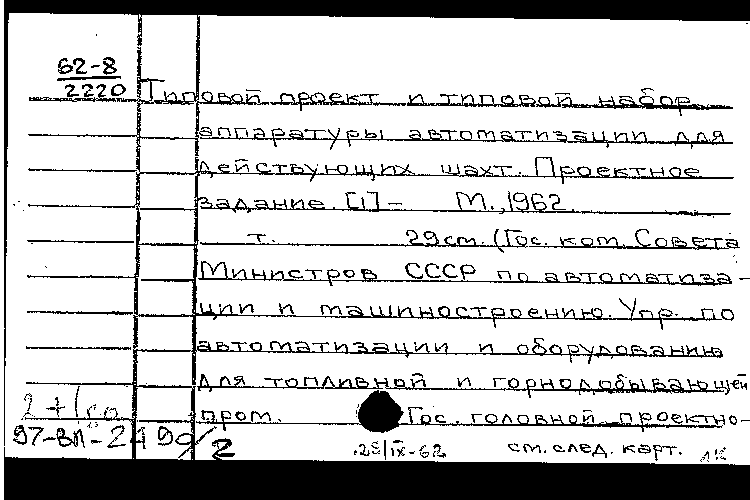 62-8
2220 Типовой проект и типовой набор
аппаратуры автоматизации для
действующих шахт. Проектное
задание. [1] - М., 1962.
т. 29 см. (Гос. ком. Совета
Министров СССР по автоматиза-
ции и машиностроению. Упр. по
автоматизации и оборудованию
для топливной и горнодобывающей
пром. Гос. головной проектно-
97-ВЛ-2490/2
25/IX-62 см. след. карт.